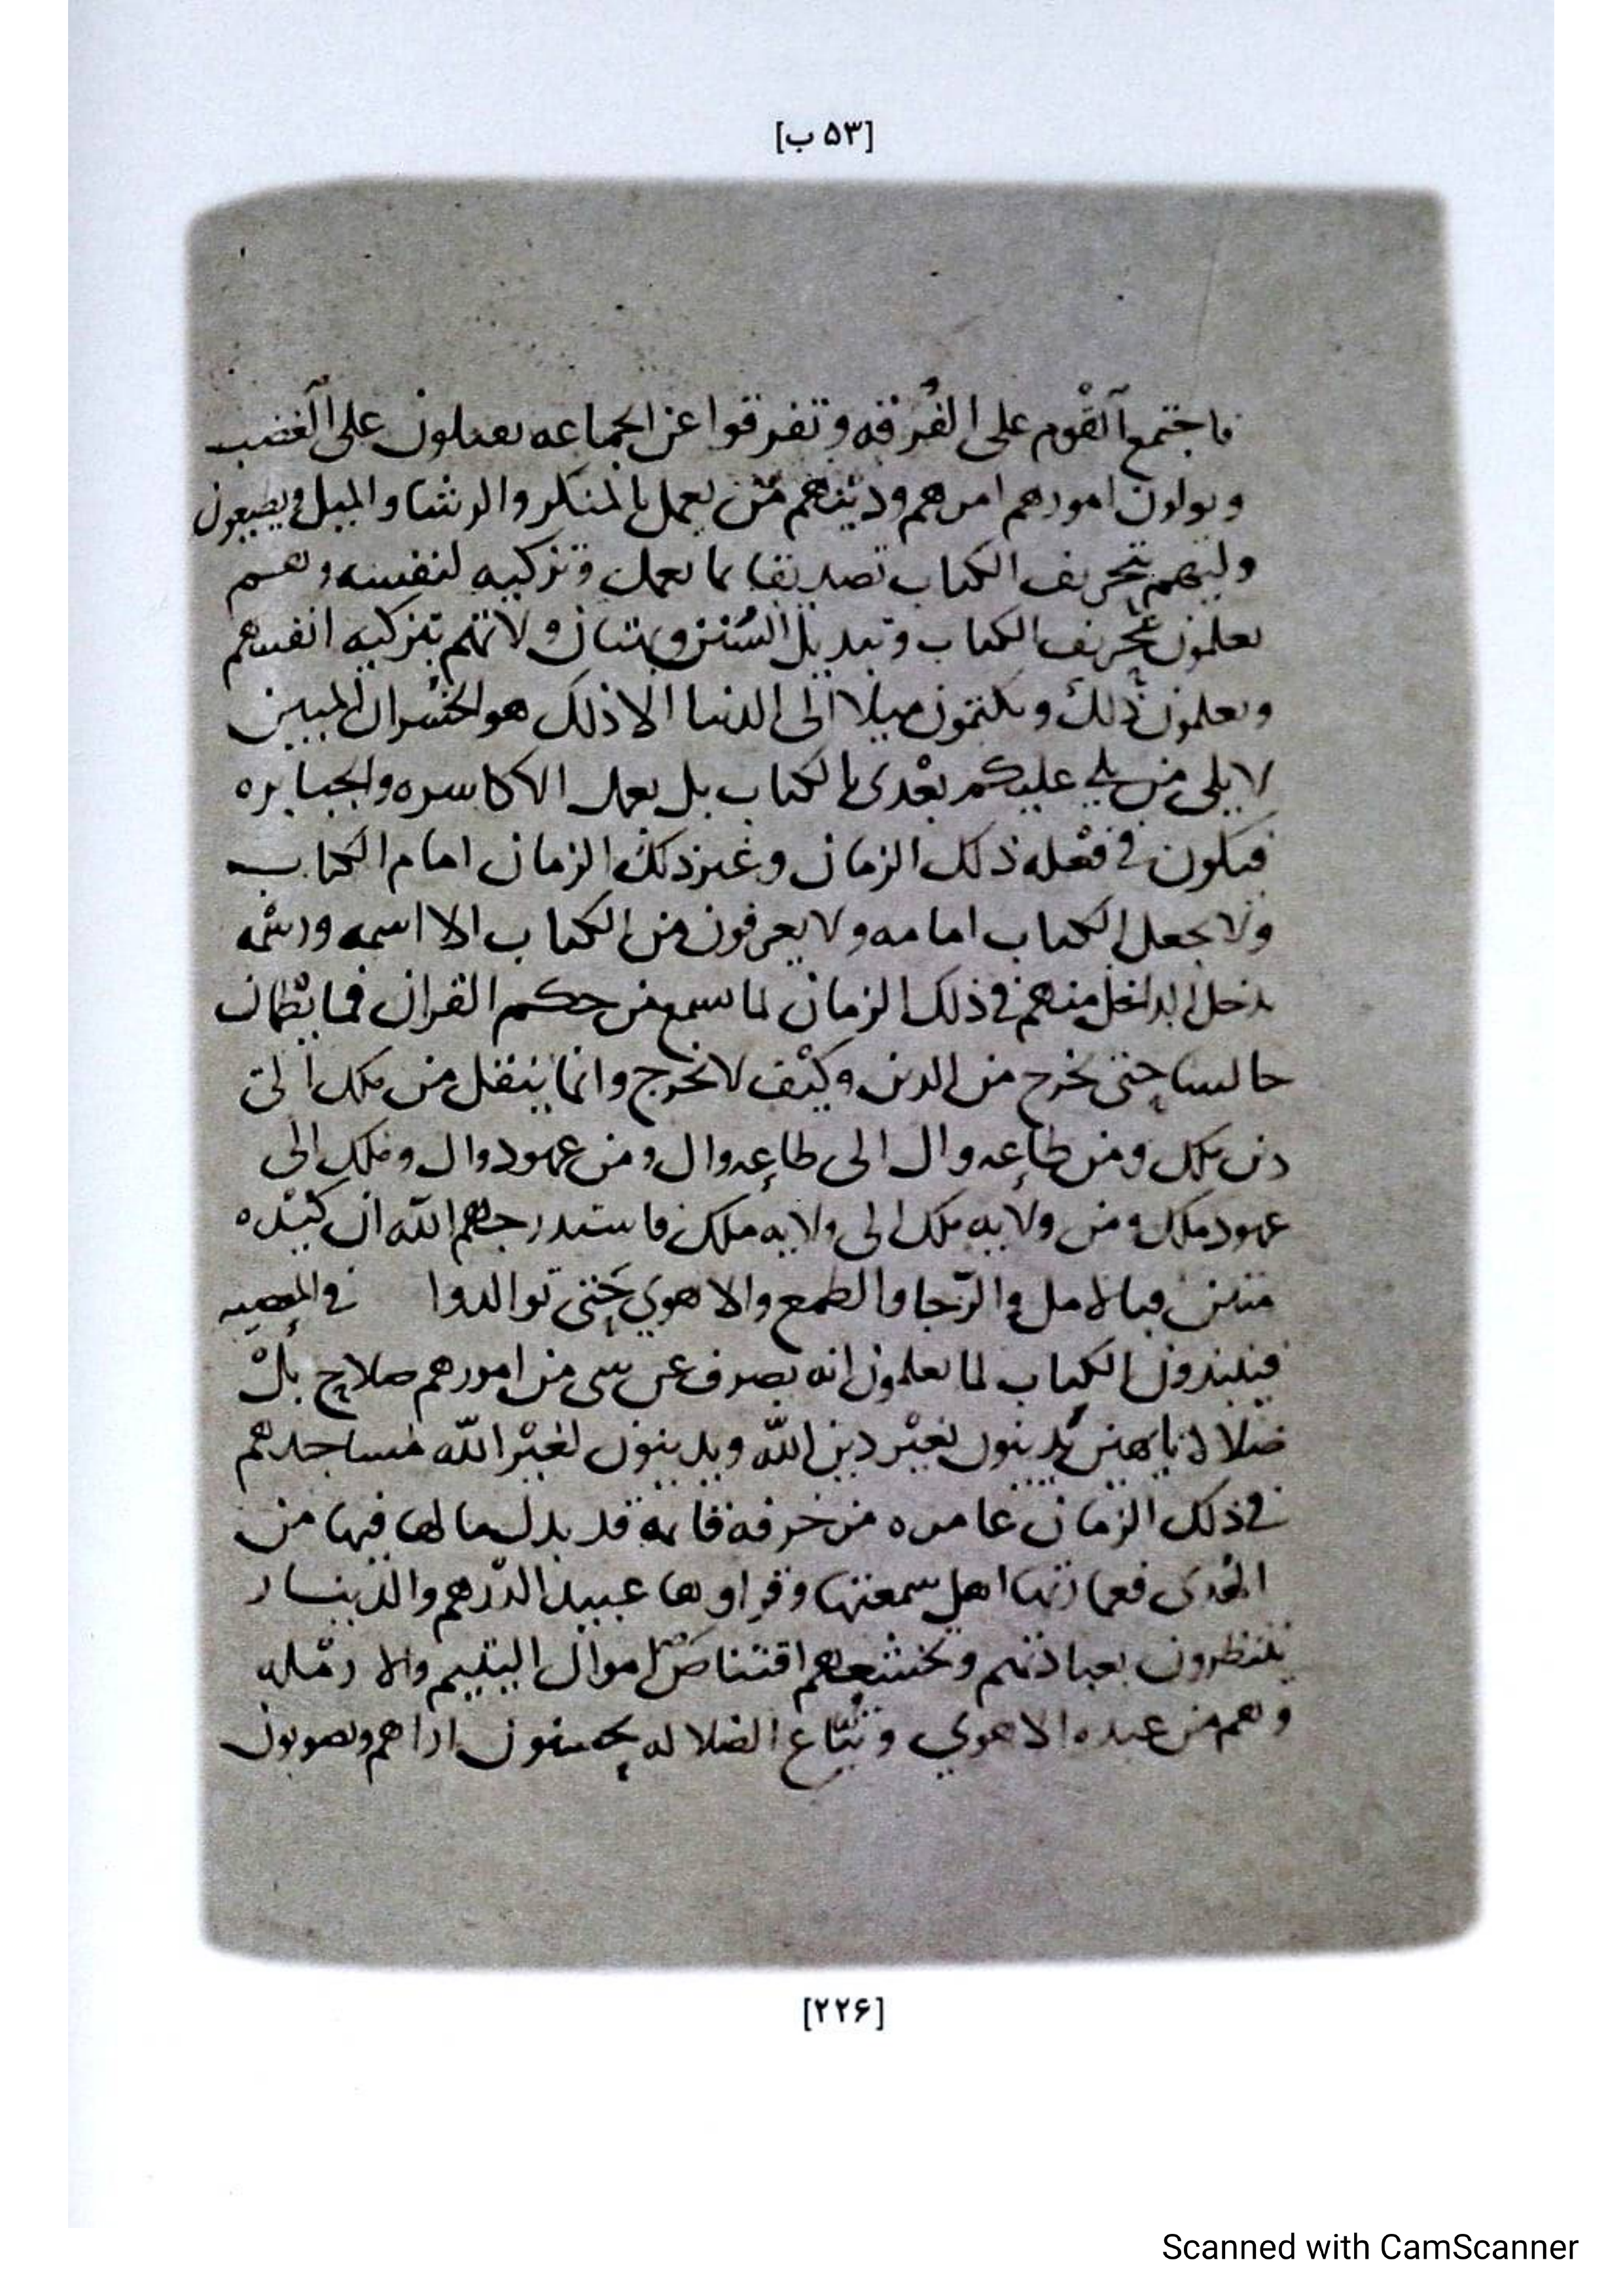 [۵۳ ب]
فاجتمع القوم على الفرقه وتفرقوا عن الجماعه يعملون على الغضب
ويولون امورهم امرهم ودينهم من يعمل بالمنكر والرشا والميل
وليهم بتحريف الكتاب تصديقا بما يعمل وتزكيه لنفسه وهم
يعلمون تحريف الكتاب وتبديل السنن وبهتان ولاتهم بتزكيه انفسهم
ويعلمون ذلك ويكتمون ميلا الى الدنيا الا ذلك هو الخسران المبين
لا يلى من يلي عليكم بعدى بالكتاب بل بعمل الاكاسره والجبابره
فيكون في فعله ذلك الزمان وغير ذلك الزمان امام الكتاب
ولا يجعل الكتاب امامه ولا يعرفون من الكتاب الا اسمه ورسمه
يدخل الداخل منهم في ذلك الزمان لما سمع من حكم القران فما يطمان
جالسا حتى يخرج من الدين وكيف لا يخرج وانما ينتقل من ملك الى
دين ملك ومن طاعه وال الى طاعه وال ومن عهود وال وملك الى
عهود ملك ومن ولايه ملك الى ولايه ملك فاستدرجهم الله ان كيده
متين فبالامل والرجا والطمع والاهوي حتى توالدوا في المعصيه
فينبذون الكتاب لما يعلمون انه يصرف عن شى من امورهم صلاح بل
ضلالا تايهين يدينون بغير دين الله ويدينون لغير الله مساجدهم
في ذلك الزمان عامره من خرفه قايمه قد بدل ما لها فيها من
الهدى فعمارتها اهل سمعتها وقراوها عبيد الدرهم والدينار
ينتظرون بعبادتهم وتخشعهم اقتناص اموال اليتيم والارمله
وهم من عبده الاهوي وتباع الضلاله يحسنون اراهم ويصوبون
[۲۲۶]
Scanned with CamScanner